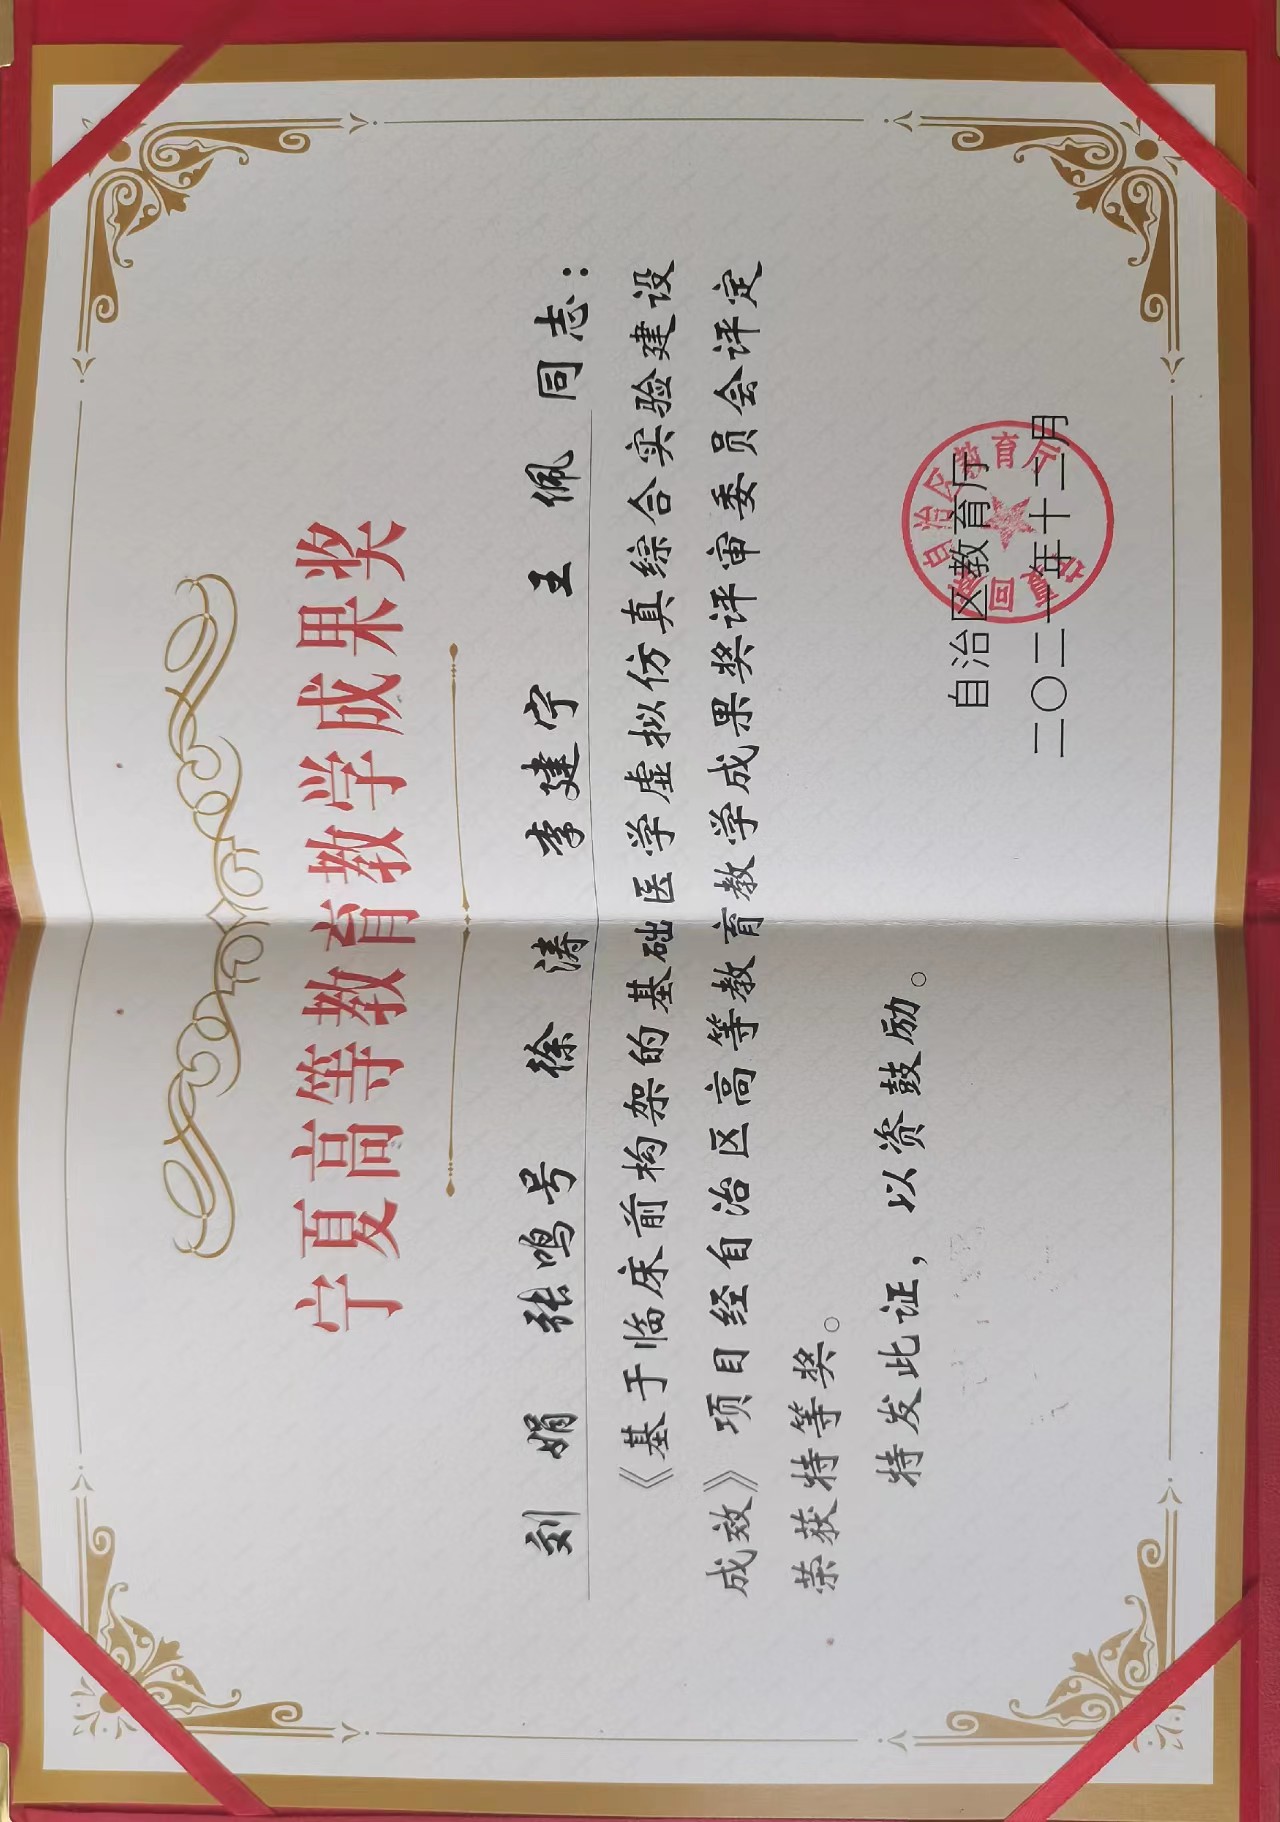 宁夏高等教育教学成果奖
刘娟 张鸣号 徐涛 李建宁 王佩 同志：
《基于临床前构架的基础医学虚拟仿真综合实验建设
成效》项目经自治区高等教育教学成果奖评审委员会评定
荣获特等奖。
特发此证，以资鼓励。
自治区教育厅
二〇二一年十二月
宁夏回族自治区教育厅